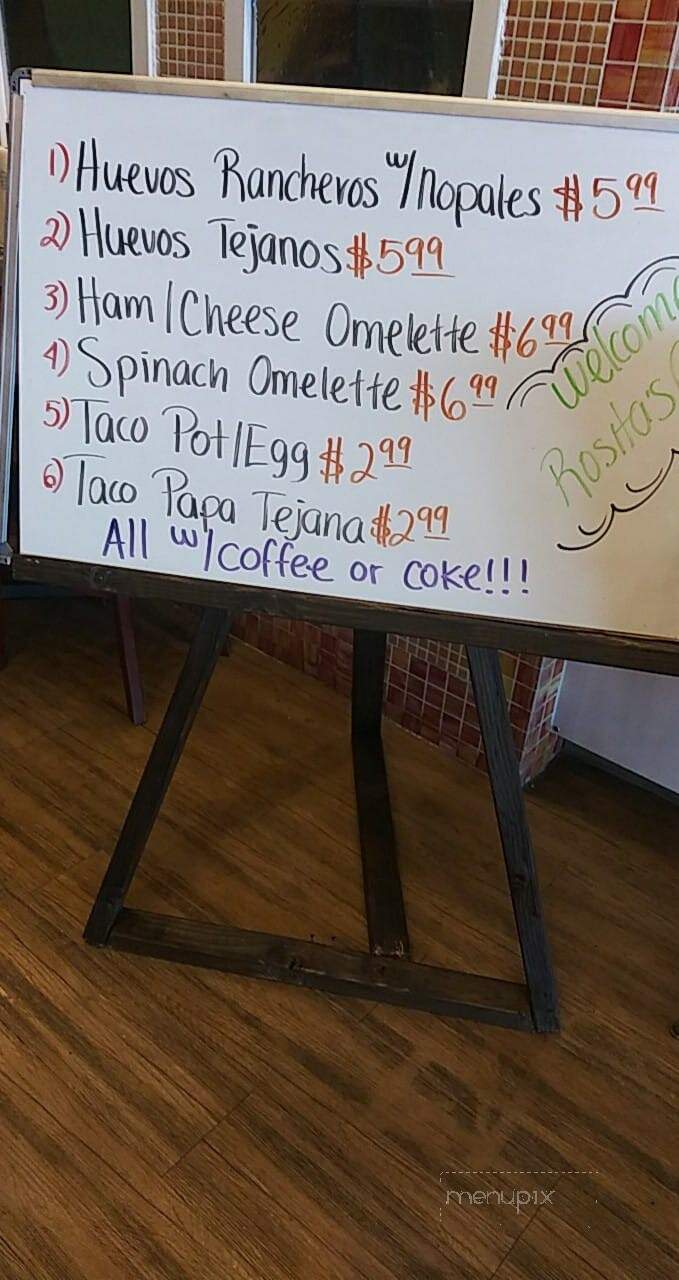 1) Huevos Rancheros w/nopales $5.99
2) Huevos Tejanos $5.99
3) Ham/Cheese Omelette $6.99
4) Spinach Omelette $6.99
5) Taco Pot/Egg $2.99
6) Taco Papa Tejana $2.99
All w/coffee or coke!!!
Welcome
Rosita's
menupix